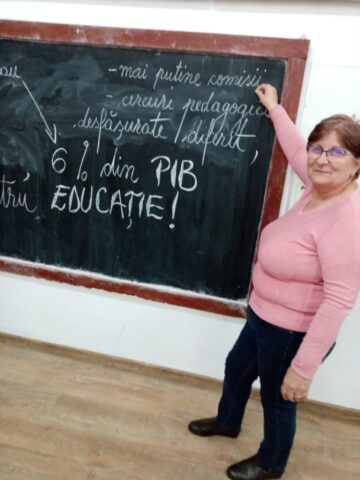 au
- mai puține comisii
- cercuri pedagogice
desfășurate diferit,
6 % din PIB
tru EDUCAȚIE!